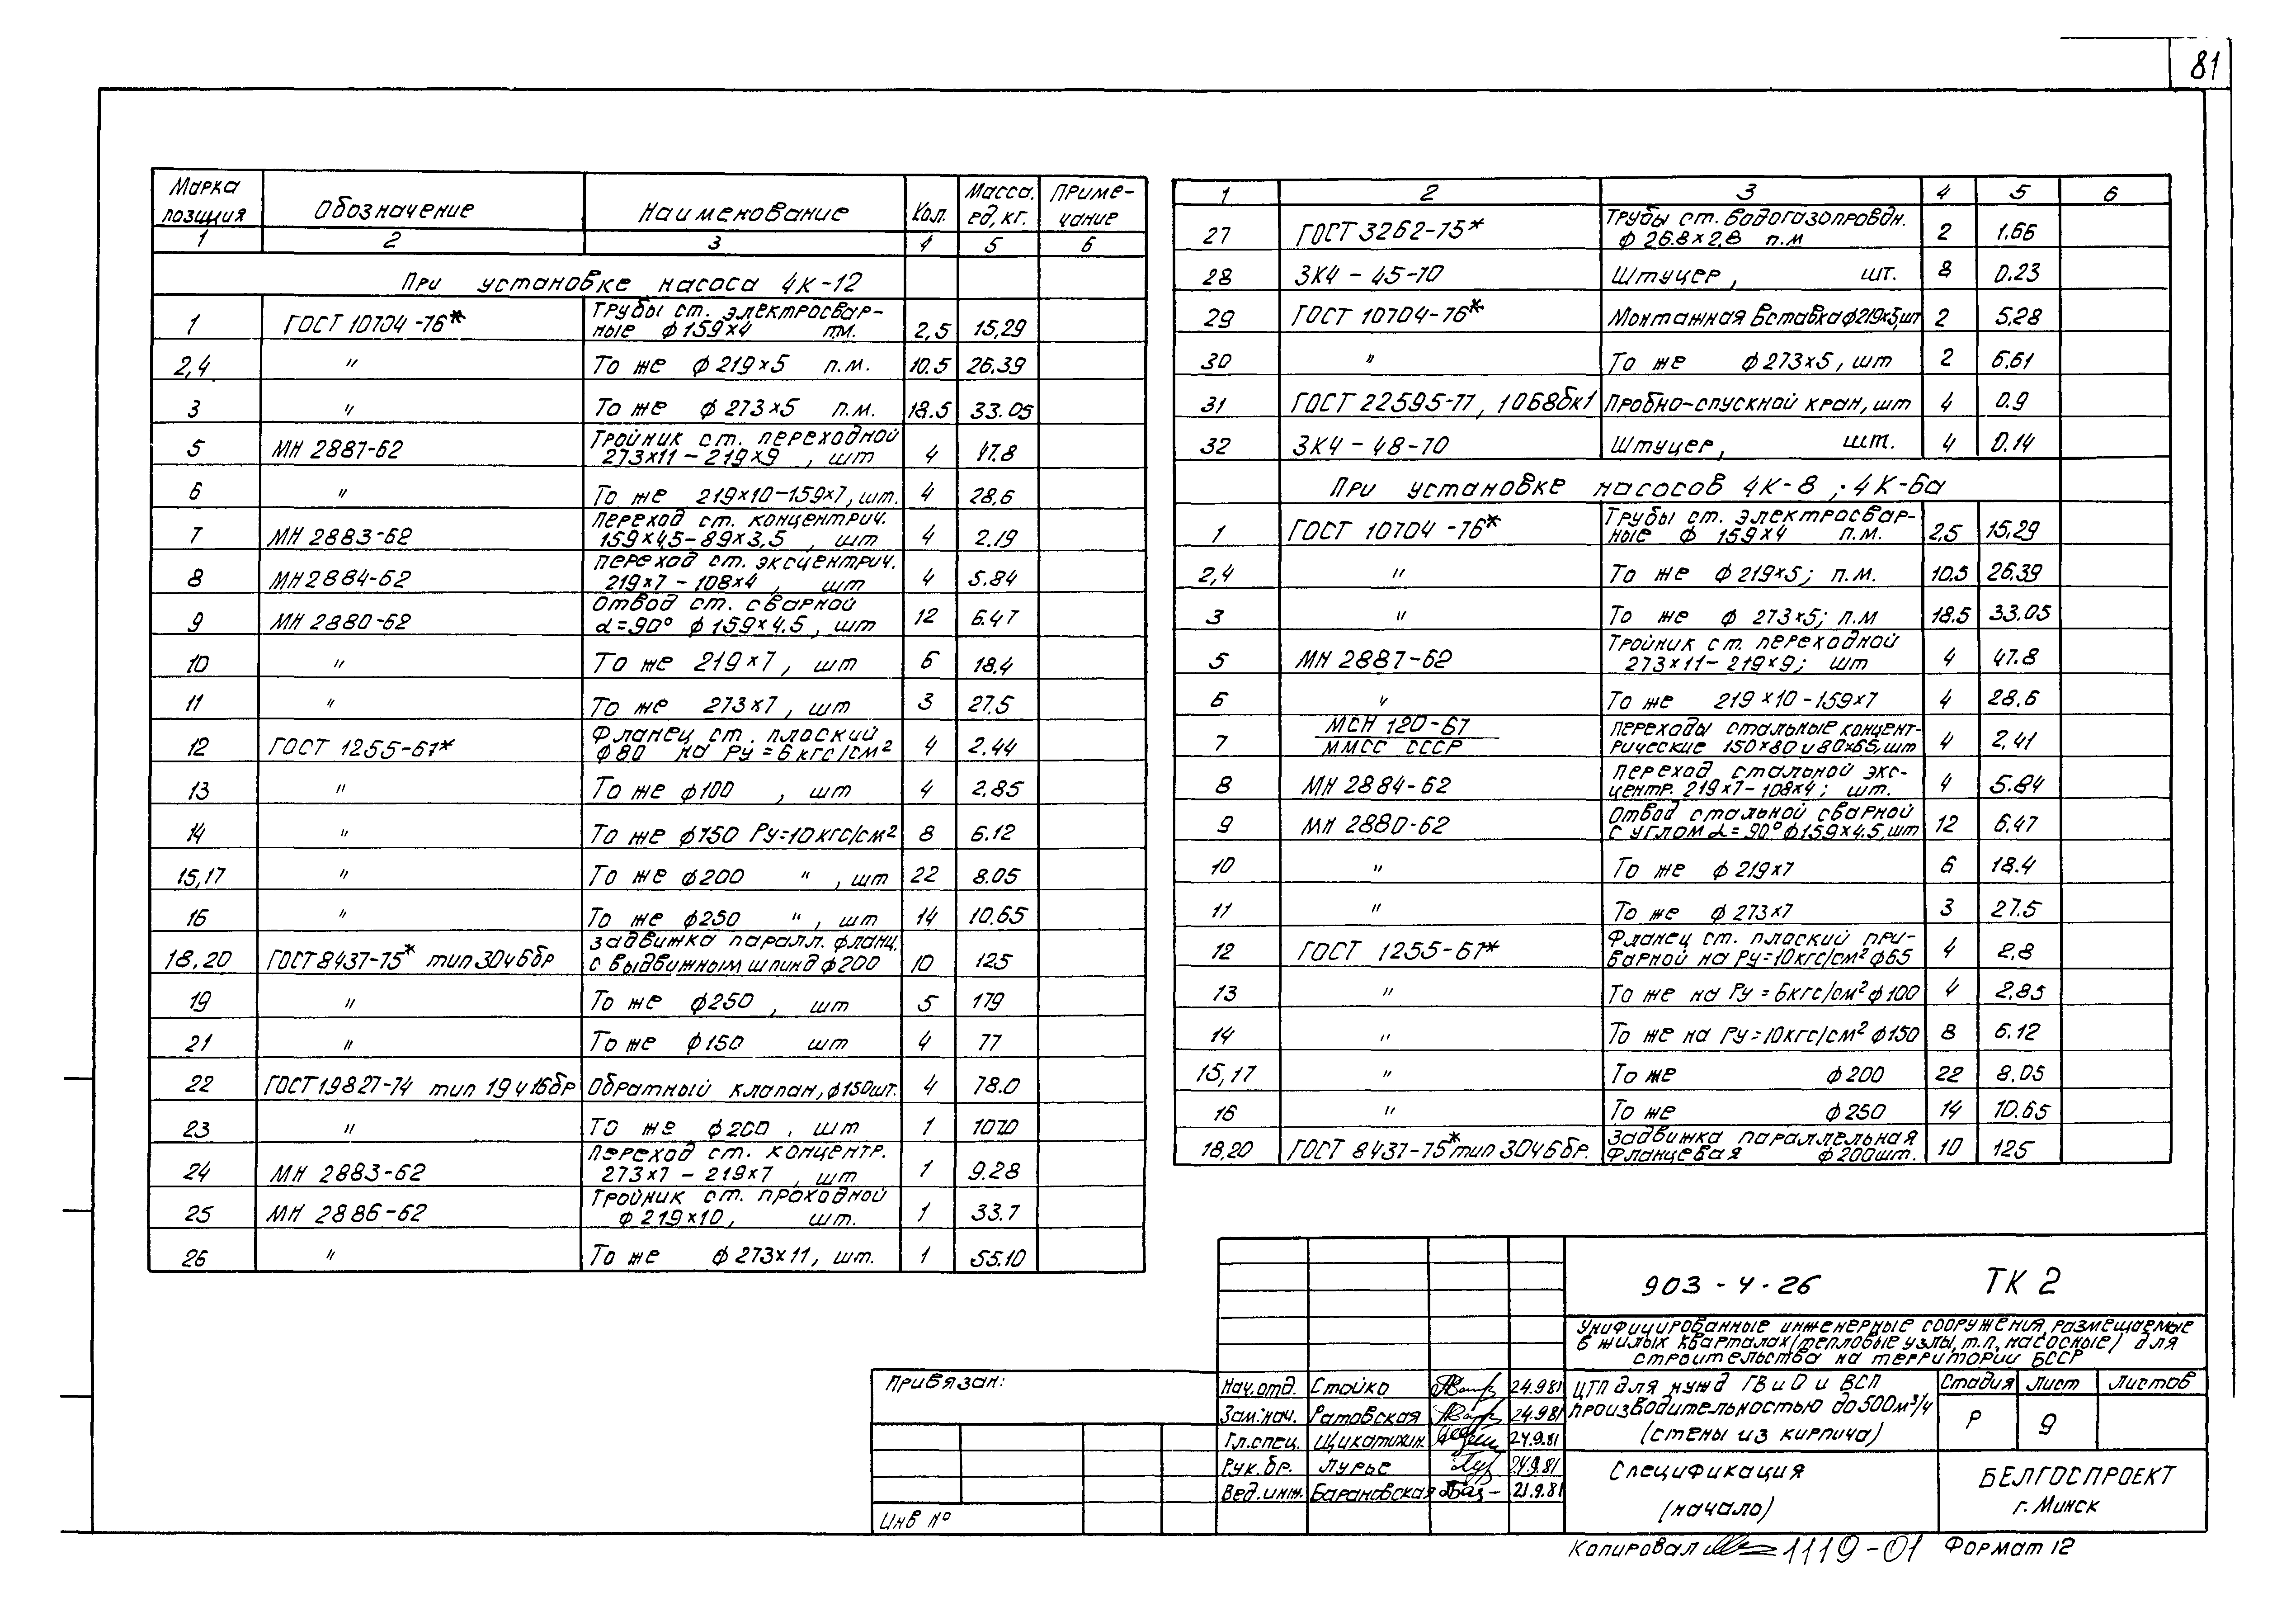 81
Марка позиция | Обозначение | Наименование | Кол. | Масса. ед, кг. | Приме-чание
1 | 2 | 3 | 4 | 5 | 6
При установке насоса 4К-12
1 | ГОСТ 10704-76* | Трубы ст. электросвар-ные ф159×4 п.м. | 2,5 | 15,29
2,4 | " | То же ф219×5 п.м. | 10.5 | 26.39
3 | " | То же ф273×5 п.м. | 18.5 | 33.05
5 | МН 2887-62 | Тройник ст. переходной 273×11-219×9, шт | 4 | 47.8
6 | " | То же 219×10-159×7, шт. | 4 | 28,6
7 | МН 2883-62 | Переход ст. концентрич. 159×4,5-89×3,5, шт | 4 | 2.19
8 | МН 2884-62 | Переход ст. эксцентрич. 219×7-108×4, шт | 4 | 5.84
9 | МН 2880-62 | Отвод ст. сварной α=90° ф159×4.5, шт | 12 | 6.47
10 | " | То же 219×7, шт | 6 | 18.4
11 | " | То же 273×7, шт | 3 | 27.5
12 | ГОСТ 1255-67* | Фланец ст. плоский ф80 на Ру=6кгс/см² | 4 | 2.44
13 | " | То же ф100, шт | 4 | 2,85
14 | " | То же ф150 Ру=10кгс/см² | 8 | 6.12
15,17 | " | То же ф200 ", шт | 22 | 8.05
16 | " | То же ф250 ", шт | 14 | 10.65
18,20 | ГОСТ 8437-75* тип 30ч6бр | Задвижка паралл. фланц. с выдвижным шпинд ф200 | 10 | 125
19 | " | То же ф250, шт | 5 | 179
21 | " | То же ф150 шт | 4 | 77
22 | ГОСТ 19827-74 тип 19ч16бр | Обратный клапан, ф150шт. | 4 | 78.0
23 | " | То же ф200, шт | 1 | 107.0
24 | МН 2883-62 | Переход ст. концентр. 273×7-219×7, шт | 1 | 9.28
25 | МН 2886-62 | Тройник ст. проходной ф219×10, шт. | 1 | 33.7
26 | " | То же ф273×11, шт. | 1 | 55.10
1 | 2 | 3 | 4 | 5 | 6
27 | ГОСТ 3262-75* | Трубы ст. водогазопроводн. ф26.8×2,8 п.м | 2 | 1.66
28 | ЗК4-45-70 | Штуцер, шт. | 8 | 0.23
29 | ГОСТ 10704-76* | Монтажная вставка ф219×5, шт | 2 | 5,28
30 | " | То же ф273×5, шт | 2 | 6,61
31 | ГОСТ 22595-77, 10б8бк1 | Пробно-спускной кран, шт | 4 | 0.9
32 | ЗК4-48-70 | Штуцер, шт. | 4 | 0.14
При установке насосов 4К-8; 4К-6а
1 | ГОСТ 10704-76* | Трубы ст. электросвар-ные ф 159×4 п.м. | 2,5 | 15,29
2,4 | " | То же ф219×5; п.м. | 10.5 | 26.39
3 | " | То же ф 273×5; п.м | 18.5 | 33.05
5 | МН 2887-62 | Тройник ст. переходной 273×11-219×9; шт | 4 | 47.8
6 | " | То же 219×10-159×7 | 4 | 28.6
7 | МСН 120-67 ММСС СССР | Переходы стальные концент-рические 150×80 и 80×65, шт | 4 | 2,41
8 | МН 2884-62 | Переход стальной экс-центр. 219×7-108×4; шт. | 4 | 5.84
9 | МН 2880-62 | Отвод стальной сварной с углом α=90° ф159×4.5, шт | 12 | 6,47
10 | " | То же ф219×7 | 6 | 18.4
11 | " | То же ф273×7 | 3 | 27.5
12 | ГОСТ 1255-67* | Фланец ст. плоский при-варной на Ру=10кгс/см² ф65 | 4 | 2,8
13 | " | То же на Ру=6кгс/см² ф100 | 4 | 2,85
14 | " | То же на Ру=10кгс/см² ф150 | 8 | 6.12
15,17 | " | То же ф200 | 22 | 8.05
16 | " | То же ф250 | 14 | 10.65
18,20 | ГОСТ 8437-75* тип 30ч6бр. | Задвижка параллельная фланцевая ф200шт. | 10 | 125
903-4-26 ТК 2
Унифицированные инженерные сооружения, размещаемые
в жилых кварталах (тепловые узлы, т.п, насосные) для
строительства на территории БССР
Привязан:
Инв №
Нач.отд. Стойко 24.9.81
Зам.нач. Ратовская 24.9.81
Гл.спец. Щикатихин. 24.9.81
Рук.бр. Лурье 24.9.81
Вед.инж. Барановская 21.9.81
ЦТП для нужд ГВ и О и ВСП
производительностью до 500м³/ч
(стены из кирпича)
Стадия Лист Листов
Р 9
Спецификация
(начало)
БЕЛГОСПРОЕКТ
г. Минск
Копировал 1119-01 Формат 12